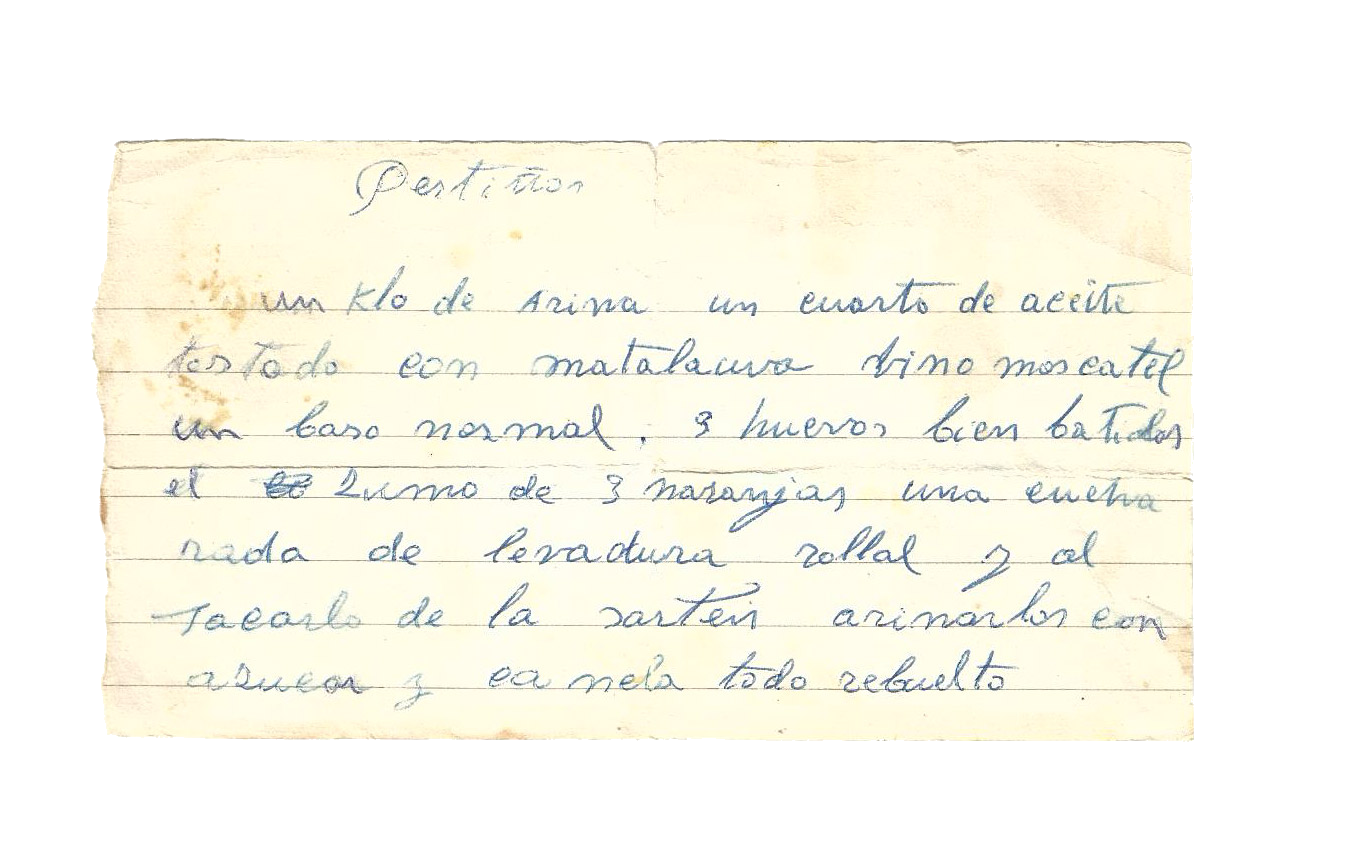 Pestiños
un Klo de Arina un cuarto de aceite
tostado con matalauva bino moscatel
un baso normal, 3 huevos bien batidos
el zumo de 3 naranjas una cucha
rada de levadura rollal y al
sacarlo de la sartén arinarlos con
azucar y ca nela todo rebuelto